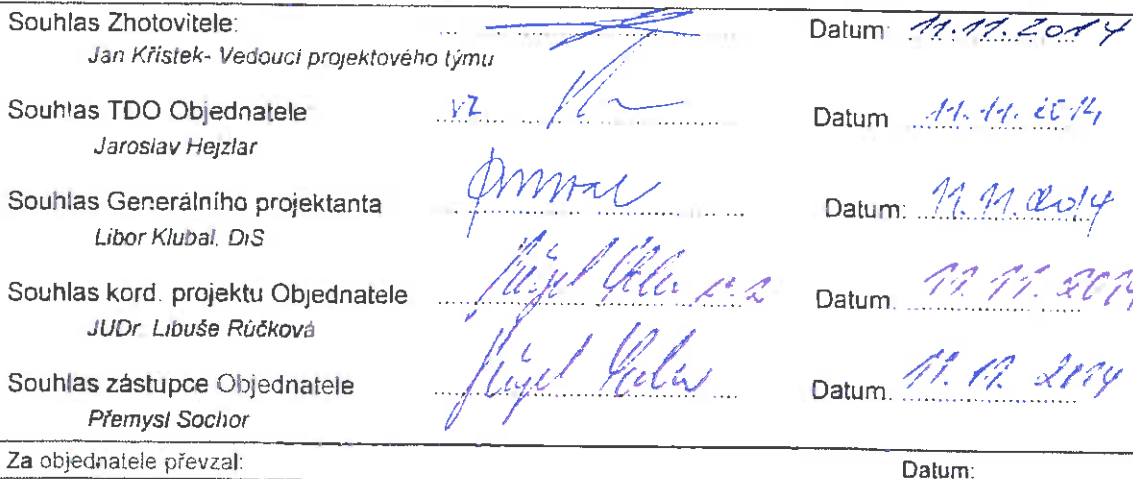 Souhlas Zhotovitele: Datum: 11.11.2014
Jan Křístek- Vedoucí projektového týmu
Souhlas TDO Objednatele vz Datum 11.11.2014
Jaroslav Hejzlar
Souhlas Generálního projektanta Datum: 11.11.2014
Libor Klubal, DiS
Souhlas kord. projektu Objednatele Datum. 11.11.2014
JUDr. Libuše Růčková
Souhlas zástupce Objednatele Datum. 11.11.2014
Přemysl Sochor
Za objednatele převzal: Datum: